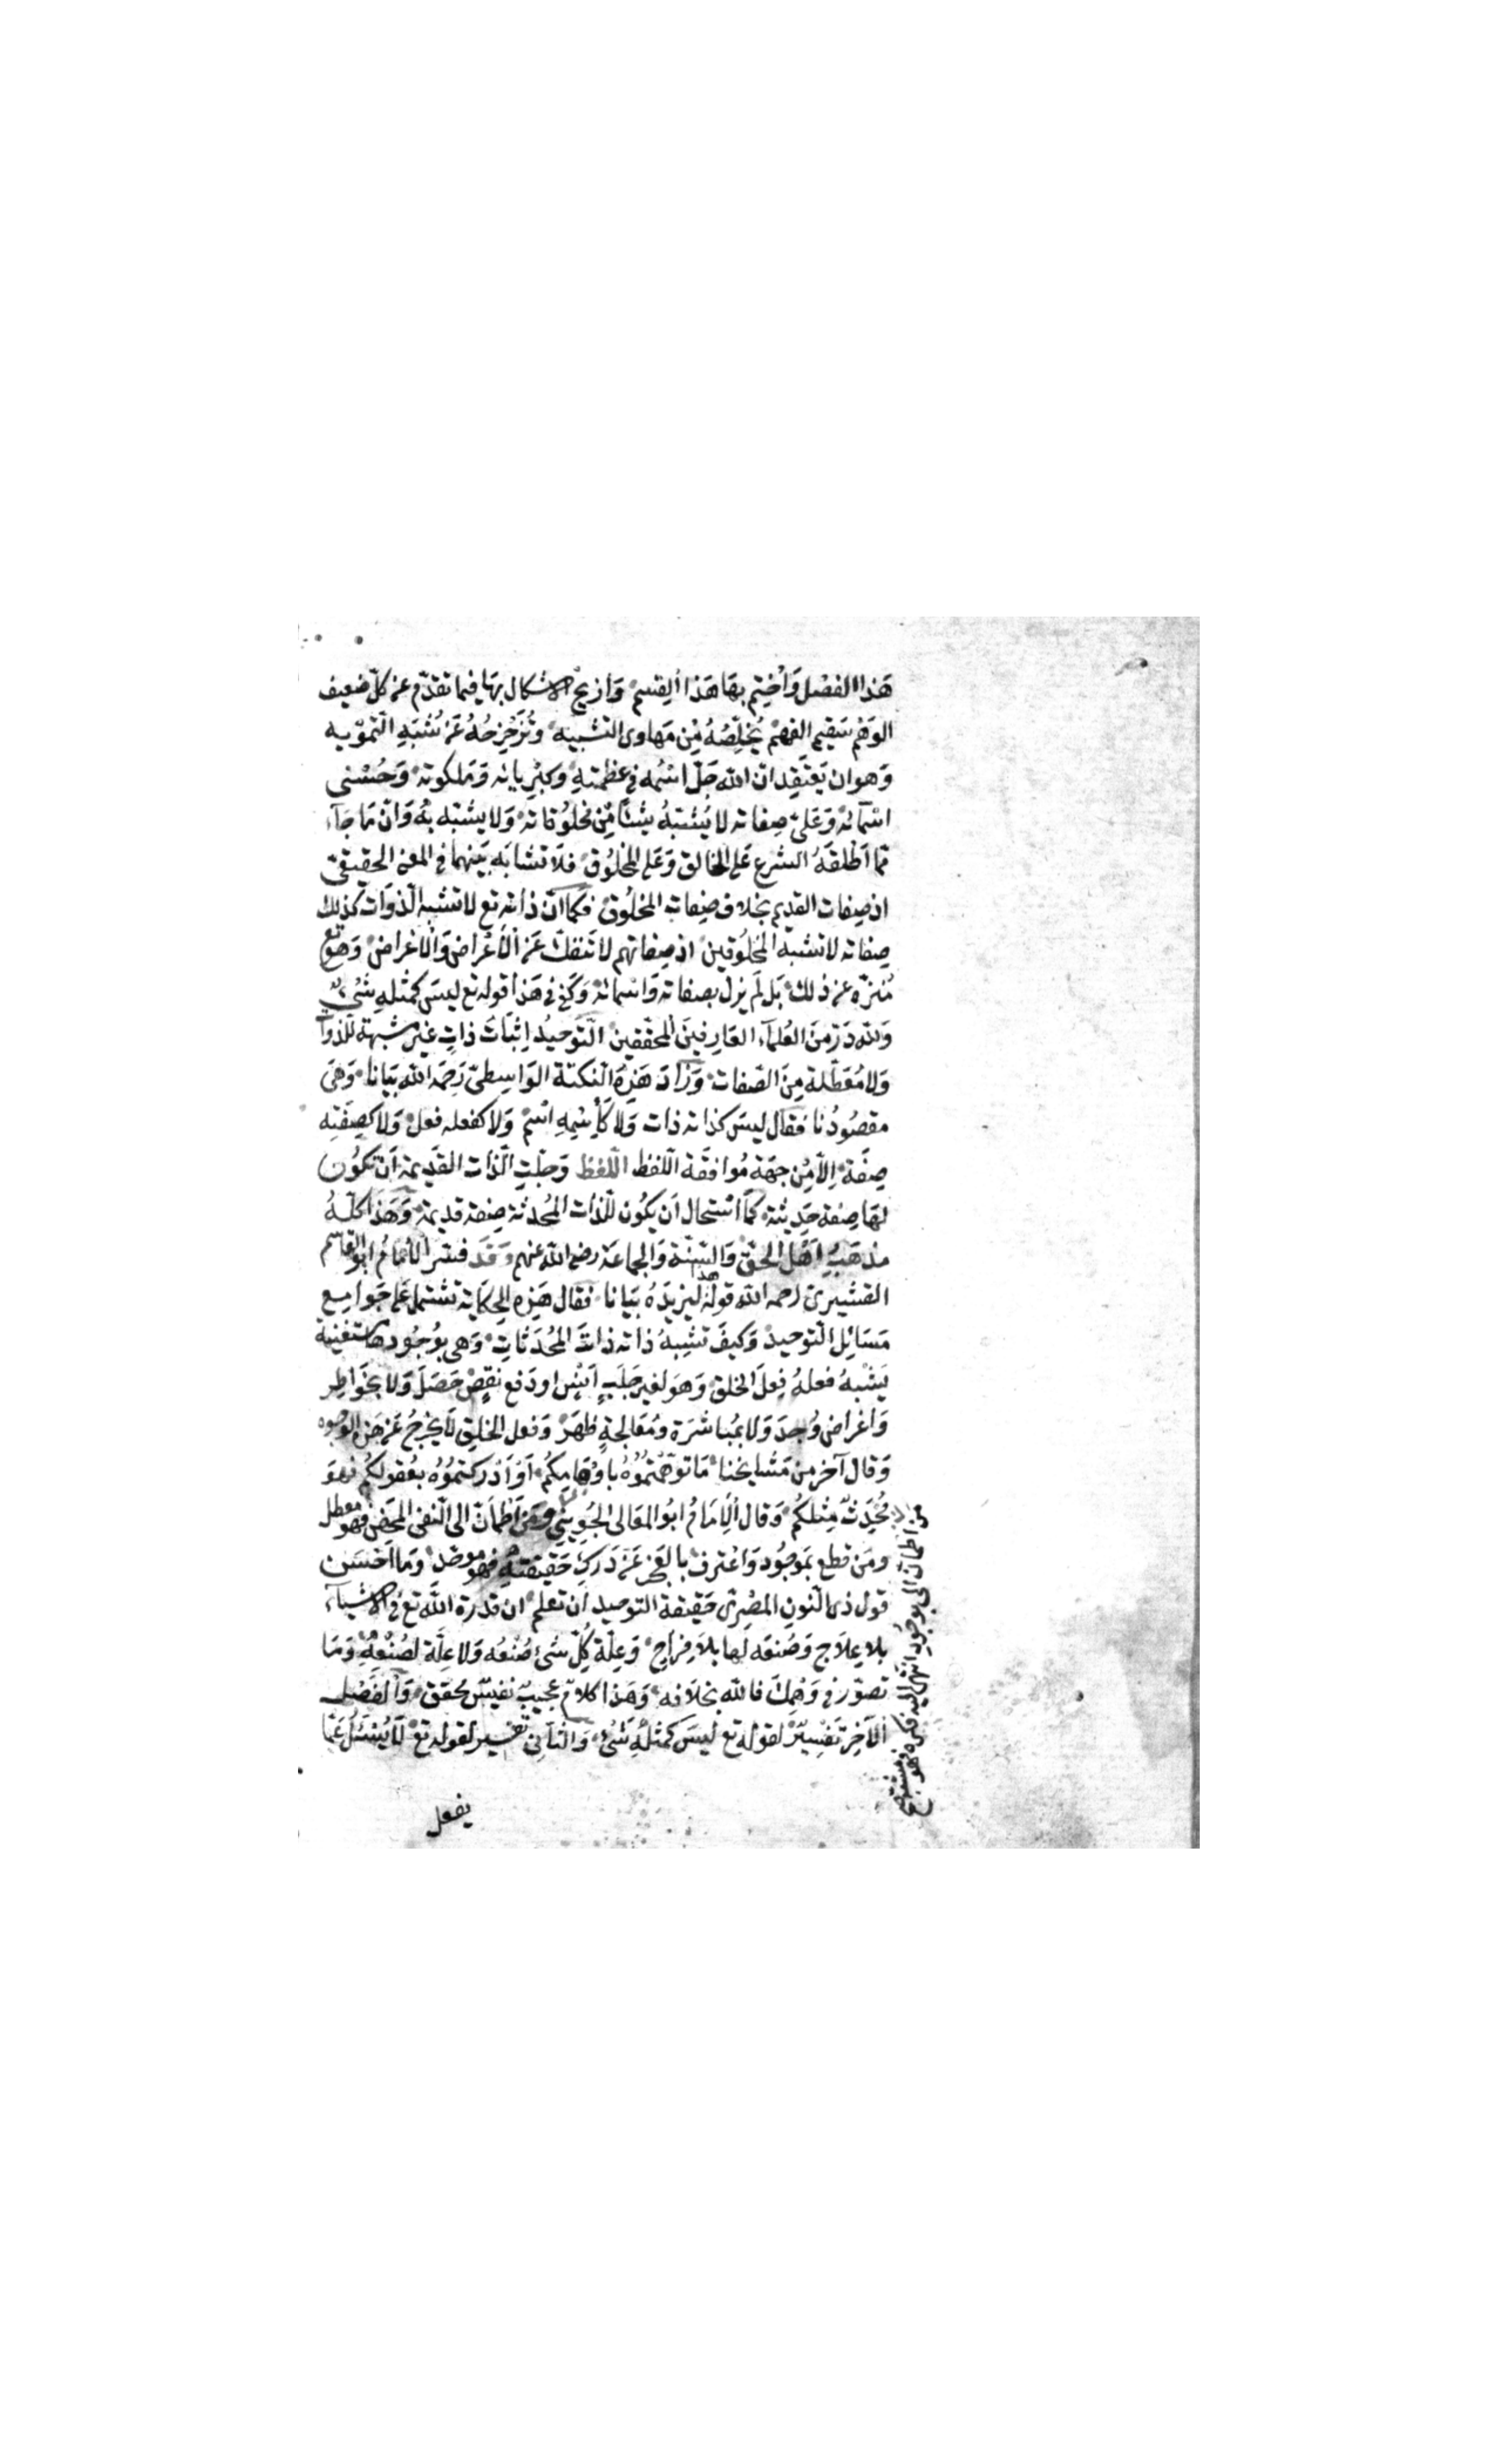 هَذا الفصْل وَأَختِم بهَا هَذا القِسم وَازيحُ الاشكال بهَا فيما تقدّم عن كلّ ضعيف
الوَهْم سَقيم الفهْم تُخلِّصُهُ مِن مَهاوى التشبيه وتُزَحزِحُهُ عَن شُبَهِ التّموْيه
وَهو ان يَعتَقِد انّ الله جَلّ اسْمُه فى عظمتهِ وكبْريائه وَمَلكوته وَحُسْنى
اسْمآئه وَعَلىّ صِفاته لا يُشبهُ شيْئاً مِّن مخلُوقاته وَلا يشبّه به وَانّ مَا جَآء
ممّا اَطْلقَهُ الشّرع عَلى الخالق وَعَلى المخلُوق فلاَ تشابُه بَينهما فى المعنى الحقيقىّ
اذ صِفات القديم بخلاف صِفات المخلُوق فكما انّ ذاته تع لا تشبه الذّوَات كذلك
صِفاته لا تشبه المخلُوقين اذ صِفاتهم لاَ تَنفكّ عَن الأعْراض وَالأغراض وَهوَ تع
مُنزّه عن ذلك بَل لَم يزل بصفاته وَاسْمائه وَكفى فى هَذا قوله تع ليسَ كمثلهِ شَىْء
وَلله دَرّ مَن العُلمآء العَارفينَ المحقّقين التّوحيدُ اِثبَاتُ ذاتٍ غير مشبهة للذّوات
وَلا مُعَطّلة مِنَ الصّفات وَزادَ هَذِهِ النّكتة الوَاسِطىّ رَحِمَه الله بيَانا وَهى
مقصُودُنا فقال ليسَ كذاته ذات وَلا كَاسْمِهِ اسْم وَلا كفعله فعل وَلا كصِفَتِه
صِفَة اِلاّ مِن جهَة مُوافقَة اللّفظ اللّفظ وَجلّتِ الذّات القَديمة اَن تكُون
لهَا صِفة حَديثة كَما اسْتحال اَن يكُون للذّات المُحدثة صِفة قديمة وَهَذا كلّهُ
مذهَبُ اَهْل الحَقّ وَالسُّنّة وَالجماعَة رضى الله عنهم وَقَد فسّر الأمَامُ ابُو القاسم
القشَيرىّ رحمه الله قولَهُ هذا ليزيدَهُ بيَانا فقال هَذِهِ الحِكاية تشتمل عَلى جَوامِع
مَسَائِل التّوحيد وَكيفَ تشبِهُ ذاته ذاتَ المُحدَثاتِ وَهى بوُجُودهَا مستغنية
يَشْبهُ فعلهُ فِعلَ الخلق وَهوَ لغير جَلبِ اُنسٍ او دَفع نقصٍ حَصَلَ وَلا بخوَاطِر
وَاغراض وُجدَ وَلا بمُباشرَة ومُعَالجةٍ ظهَرَ وَفعل الخلق لا يَخرجُ عَن هَذِه الوجوه
وَقال آخر من مَشايخنا مَا توَهّمتمُوهُ باوْهَامِكُم اَوْ اَدْركتمُوُه بعُقولِكُم فهوَ
مُحْدَثٌ مِثلكُم وَقال الإمَامُ ابُو المعَالى الجُوَينىّ وَمَن اطْمأنّ الى النّفى المحض فهو معطل
ومَن قطع بمَوجُود وَاعْترف بالعَجز عَن دَركِ حَقيقته فهو موحد وَمَا احْسَن
قول ذى النّون المصْرىّ حَقيقة التّوحيد اَن تعلم ان قدرة الله تع فى الاشيآء
بلا عِلاَج وَصُنعَه لهَا بلاَ مِزَاج وَعِلّة كلّ شىْء صُنعُه وَلا عِلّة لصُنْعِه وَمَا
تصوّر فى وَهْمِك فالله بخلافه وَهَذا كلام عجيبٌ نفيسٌ محقق وَالفَصْل
الآخِر تَفسِيرٌ لقوله تع ليسَ كمثلهِ شَىْء وَالثّانى تفسير لقوله تع لا يُسْئلُ عَمّا
يفعل
من اطمأن الى موجُود انتهى اليه فكره فهو مشبه صح